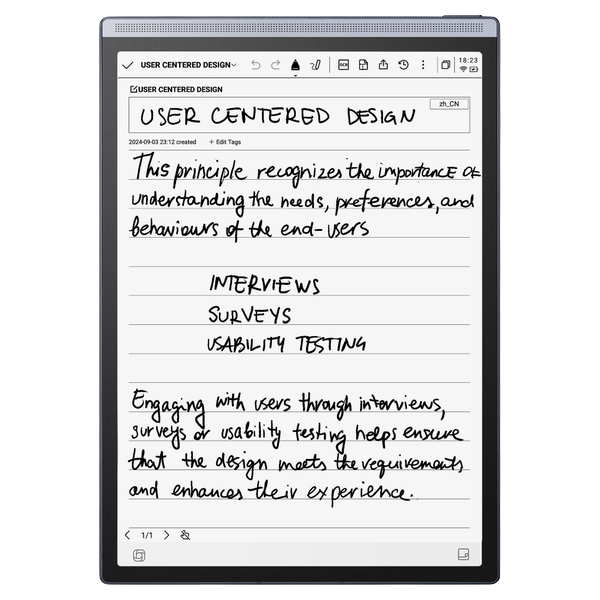 USER CENTERED DESIGN
18:23
USER CENTERED DESIGN
zh_CN
USER CENTERED DESIGN
2024-09-03 23:12 created + Edit Tags
This principle recognizes the importance of
understanding the needs, preferences, and
behaviours of the end-users
INTERVIEWS
SURVEYS
USABILITY TESTING
Engaging with users through interviews,
surveys or usability testing helps ensure
that the design meets the requirements
and enhances their experience.
1/1